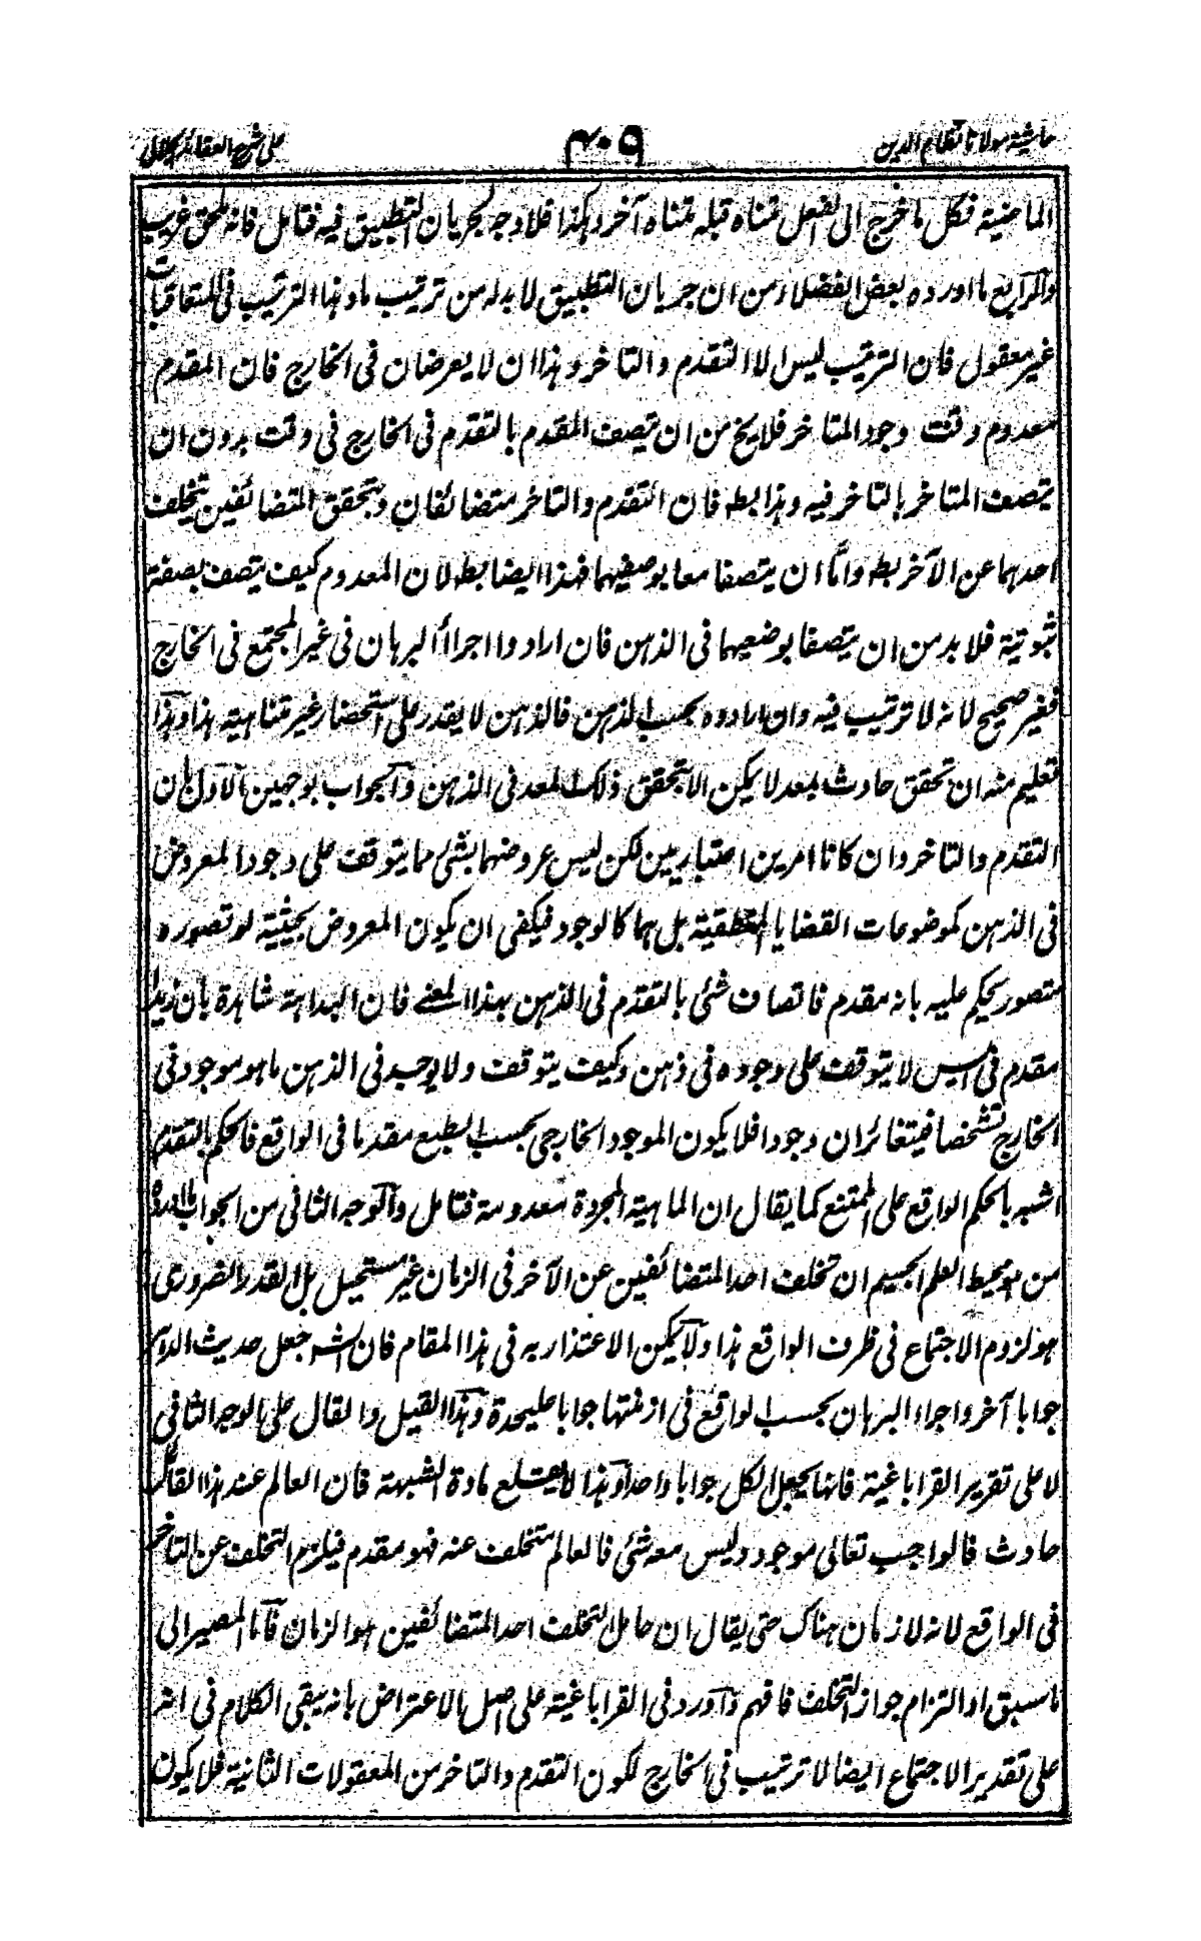 حاشية مولانا نظام الدين
٣٠٩
على شرح العقائد الجلالى
الماضية فكل ما خرج الى الفعل متناه قبله متناه آخر وهكذا فلا وجه لجريان التطبيق فيه فتامل فانه لحق غريب
والرابع ما اورده بعض الفضلاء من ان جريان التطبيق لا بد له من ترتيب ما وهذا الترتيب فى المتعاقبات
غير معقول فان الترتيب ليس الا التقدم والتاخر وهذا ان لا يعرضان فى الخارج فان المقدم
معدوم وقت وجود المتاخر فلا يخ من ان تيصف المقدم بالتقدم فى الخارج فى وقت بدون ان
يتصف المتاخر بالتاخر فيه وهذا بطه فان التقدم والتاخر متضائفان وبتحقق المتضائفين يتخلف
احدهما عن الآخر بطه واما ان يتصفا معا بوصفيهما فهذا ايضا بطه لان المعدوم كيف يتصف بصفة
ثبوتية فلا بد من ان يتصفا بوضعيهما فى الذهن فان ارادوا اجراء البرهان فى غير المجتمع فى الخارج
فغير صحيح لانه لا ترتيب فيه وان ارادوه بحسب الذهن فالذهن لا يقدر على استحضار غير متناهية هذا وهذا
تعليم منه ان تحقق حادث بمعد لا يكن الا بتحقق ذلك المعد فى الذهن والجواب بوجهين الاول ان
التقدم والتاخر وان كانا امرين اعتباريين لكن ليس عروضهما بشئ مما يتوقف على وجود المعروض
فى الذهن كموضوعات القضايا المنطقية بل هما كالوجود فيكفى ان يكون المعروض بحيثية لو تصوره
متصور يحكم عليه بانه مقدم فاتصاف شئ بالتقدم فى الذهن بهذا المعنى فان البداهة شاهدة بان زيدا
مقدم فى امس لا يتوقف على وجوده فى ذهن وكيف يتوقف ولا يوجد فى الذهن ما هو موجود فى
الخارج تشخصا فيتغائران وجودا فلا يكون الموجود الخارجى بحسب الطبع مقدما فى الواقع فالحكم بالتقدم
اشبه بالحكم الواقع على الممتنع كما يقال ان الماهية المجردة معدومة فتامل والوجه الثانى من الجواب ما افاده
من هو محيط العلم الجسيم ان تخلف احد المتضائفين عن الآخر فى الزمان غير مستحيل بل القدر الضرورى
هو لزوم الاجتماع فى ظرف الواقع هذا ولا يمكن الاعتذار به فى هذا المقام فان الشه جعل حديث الدهر
جوابا آخر واجراء البرهان بحسب الواقع فى ازمنتها جوابا عليحدة وهذا القيل والقال على الوجه الثانى
لا على تقرير القراباغية فانها يجعل الكل جوابا واحدا وهذا لا يقلع مادة الشبهة فان العالم عند هذا القائل
حادث فالواجب تعالى موجود وليس معه شئ فالعالم متخلف عنه فهو مقدم فيلزم التخلف عن التاخر
فى الواقع لانه لا زمان هناك حتى يقال ان حامل التخلف احد المتضائفين هو الزمان فاما المصير الى
ما سبق او التزام جواز التخلف فافهم واورد فى القراباغية على اصل الاعتراض بانه يبقى الكلام فى انه
على تقدير الاجتماع ايضا لا ترتيب فى الخارج لكون التقدم والتاخر من المعقولات الثانية فلا يكون